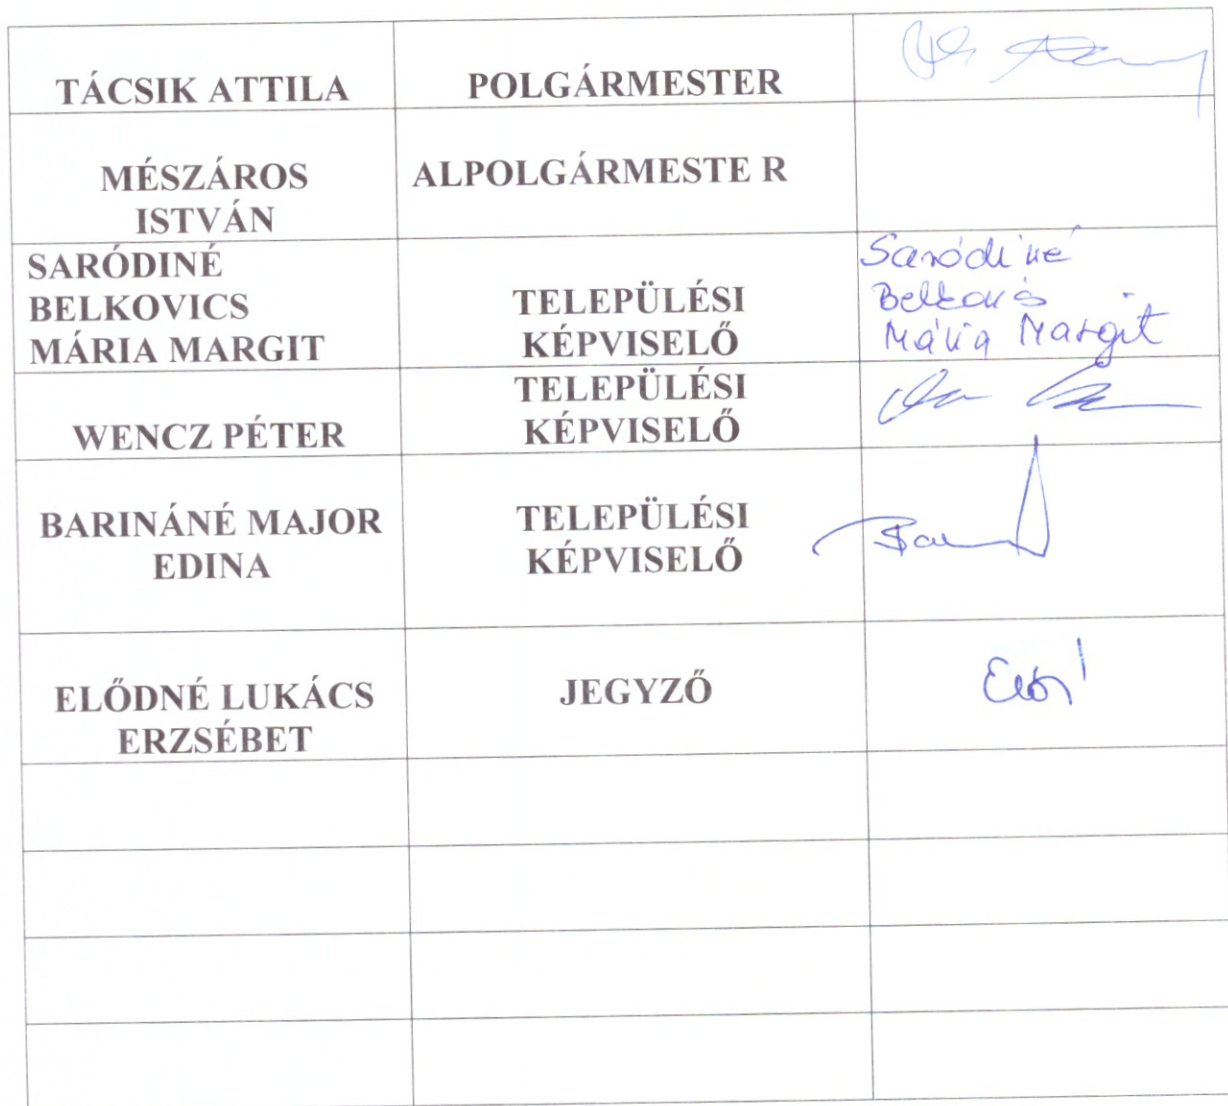 TÁCSIK ATTILA POLGÁRMESTER
MÉSZÁROS ALPOLGÁRMESTE R
ISTVÁN
SARÓDINÉ
BELKOVICS
MÁRIA MARGIT
TELEPÜLÉSI
KÉPVISELŐ
Saródiné
Belkovics
Mária Margit
WENCZ PÉTER
TELEPÜLÉSI
KÉPVISELŐ
BARINÁNÉ MAJOR
EDINA
TELEPÜLÉSI
KÉPVISELŐ
ELŐDNÉ LUKÁCS
ERZSÉBET
JEGYZŐ